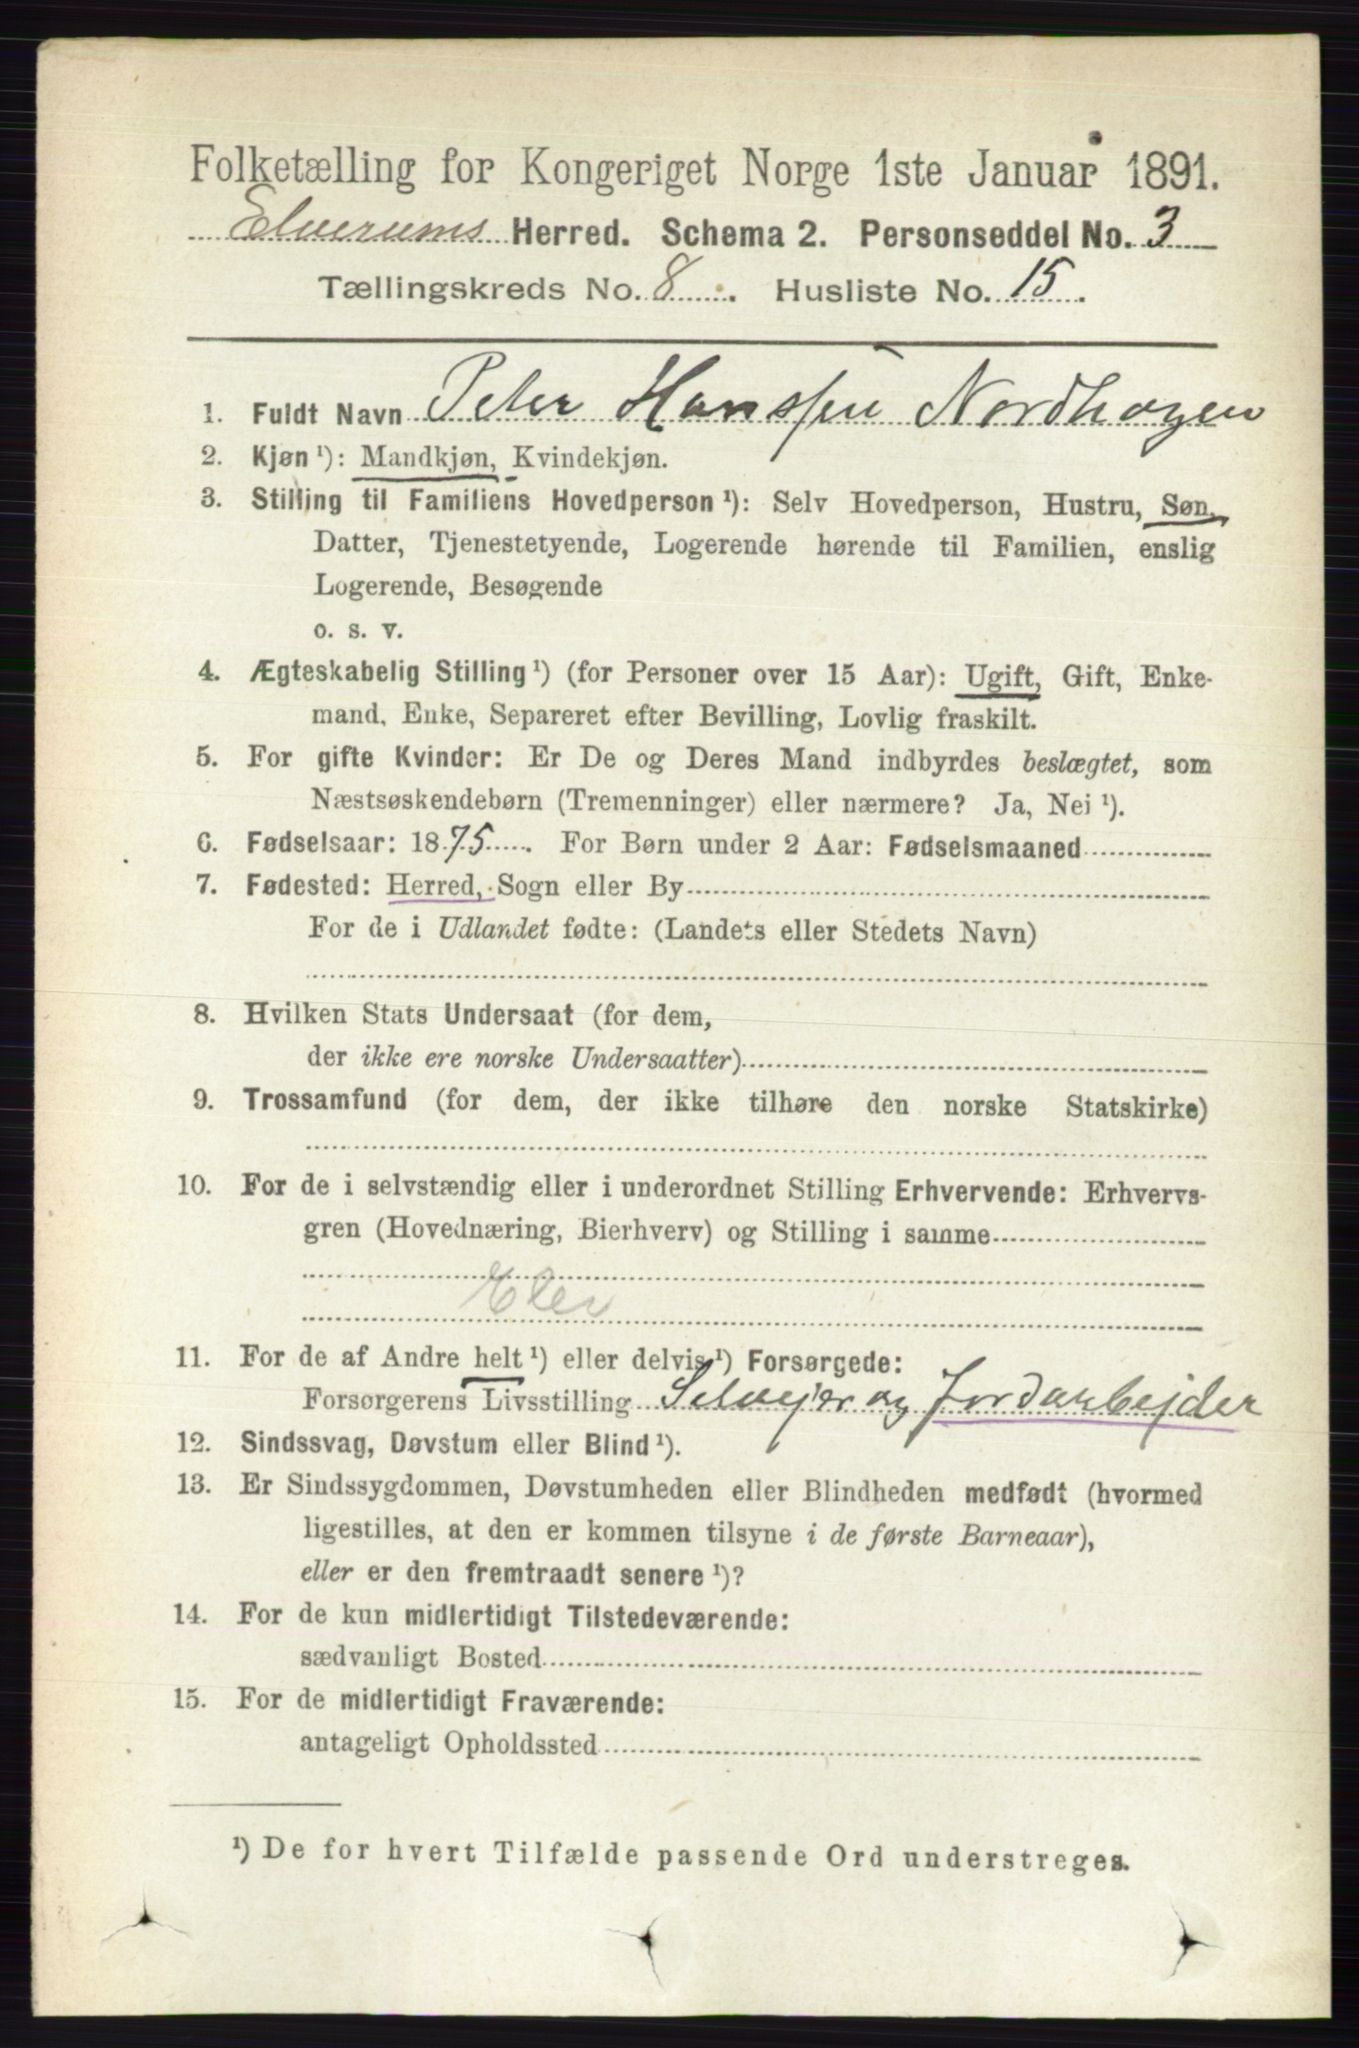 Folketælling for Kongeriget Norge 1ste Januar 1891.
Elverums Herred. Schema 2. Personseddel No. 3
Tællingskreds No. 8. Husliste No. 15.
1. Fuldt Navn Peter Hanssen Nordhagen
2. Kjøn ¹): Mandkjøn, Kvindekjøn.
3. Stilling til Familiens Hovedperson ¹): Selv Hovedperson, Hustru, Søn,
Datter, Tjenestetyende, Logerende hørende til Familien, enslig
Logerende, Besøgende
o. s. v.
4. Ægteskabelig Stilling ¹) (for Personer over 15 Aar): Ugift, Gift, Enke-
mand, Enke, Separeret efter Bevilling, Lovlig fraskilt.
5. For gifte Kvinder: Er De og Deres Mand indbyrdes beslægtet, som
Næstsøskendebørn (Tremenninger) eller nærmere? Ja, Nei ¹).
6. Fødselsaar: 1875. For Børn under 2 Aar: Fødselsmaaned
7. Fødested: Herred, Sogn eller By
For de i Udlandet fødte: (Landets eller Stedets Navn)
8. Hvilken Stats Undersaat (for dem,
der ikke ere norske Undersaatter)
9. Trossamfund (for dem, der ikke tilhøre den norske Statskirke)
10. For de i selvstændig eller i underordnet Stilling Erhvervende: Erhvervs-
gren (Hovednæring, Bierhverv) og Stilling i samme
Elev
11. For de af Andre helt ¹) eller delvis ¹) Forsørgede:
Forsørgerens Livsstilling Selvejer og Jordarbejder
12. Sindssvag, Døvstum eller Blind ¹).
13. Er Sindssygdommen, Døvstumheden eller Blindheden medfødt (hvormed
ligestilles, at den er kommen tilsyne i de første Barneaar),
eller er den fremtraadt senere ¹)?
14. For de kun midlertidigt Tilstedeværende:
sædvanligt Bosted
15. For de midlertidigt Fraværende:
antageligt Opholdssted
¹) De for hvert Tilfælde passende Ord understreges.